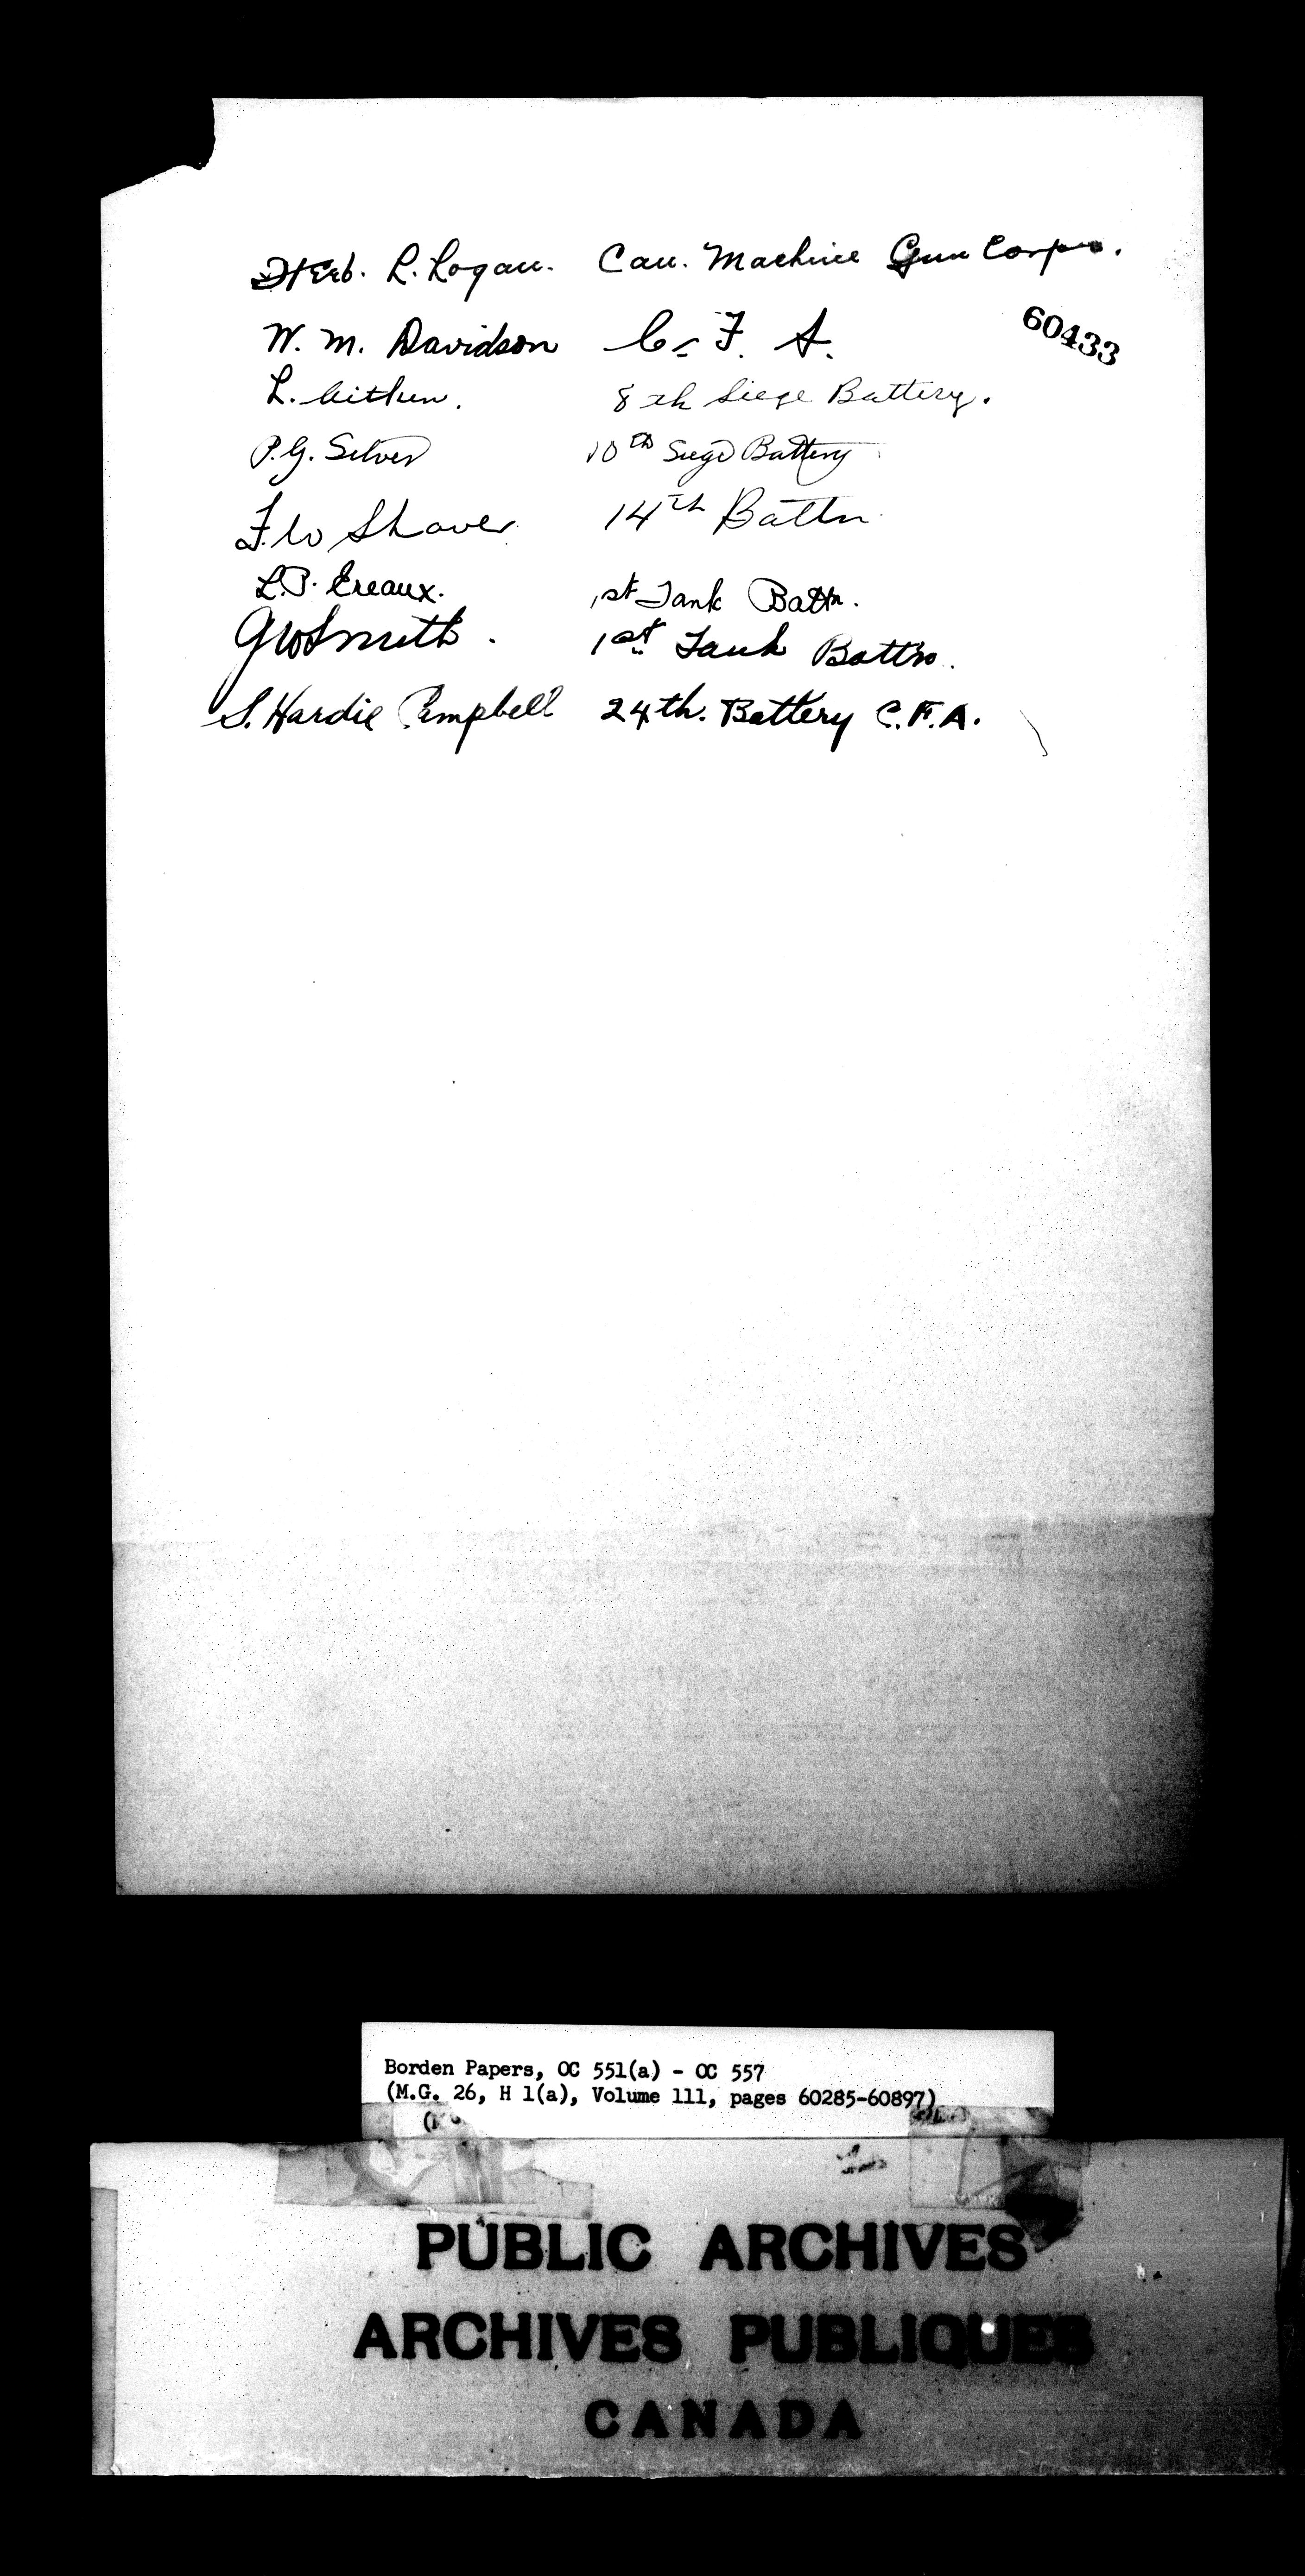 Herb. L. Logan. Can. Machine Gun Corps.
60433
W. M. Davidson C. F. A.
L. Aitken. 8th Siege Battery.
P.G. Silver 10th Siege Battery
F W Shaver 14th Battn
L.B. Creaux. 1st Tank Battn.
GW Smith. 1st Tank Battn.
S. Hardie Campbell 24th. Battery C.F.A.
Borden Papers, OC 551(a) - OC 557
(M.G. 26, H 1(a), Volume 111, pages 60285-60897)
PUBLIC ARCHIVES
ARCHIVES PUBLIQUES
CANADA